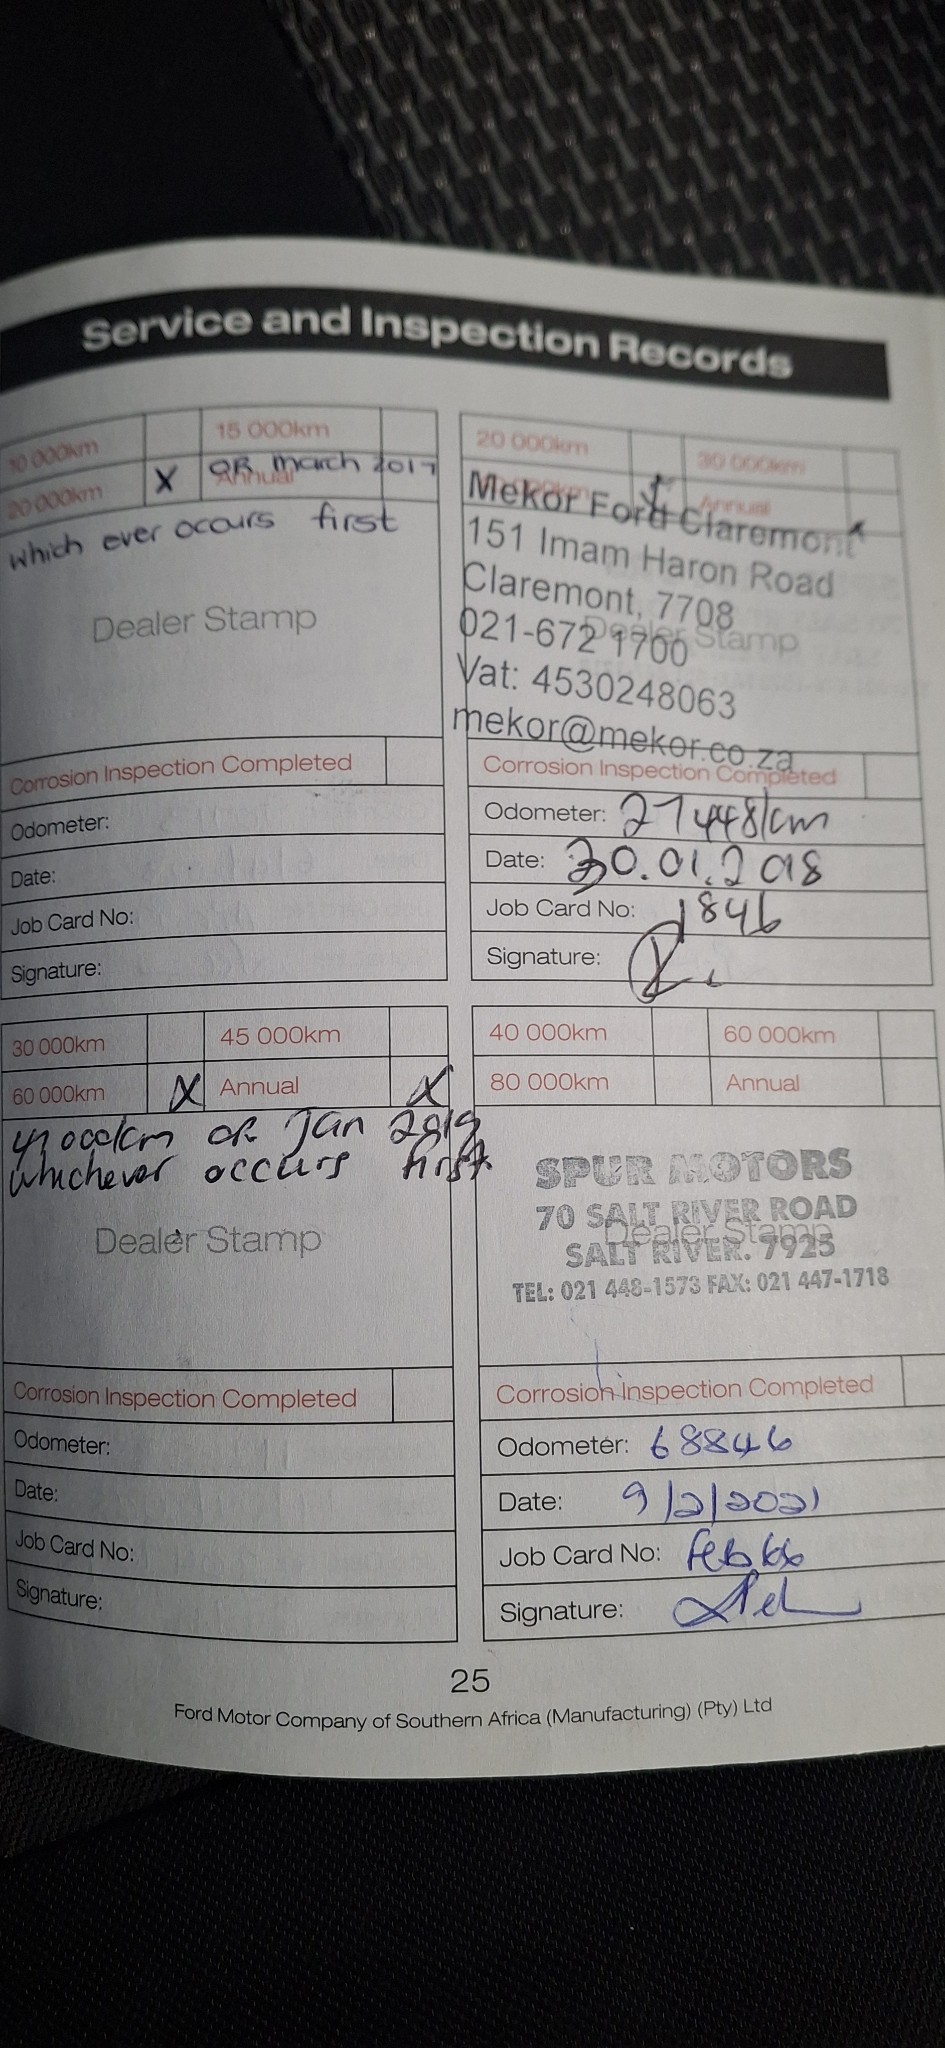 Service and Inspection Records
10 000km
15 000km
20 000km X Annual OR March 2017
which ever occurs first
Dealer Stamp
Corrosion Inspection Completed
Odometer:
Date:
Job Card No:
Signature:
20 000km
30 000km
Annual
Mekor Ford Claremont
151 Imam Haron Road
Claremont, 7708
021-672 1700
Dealer Stamp
Vat: 4530248063
mekor@mekor.co.za
Corrosion Inspection Completed
Odometer: 27448km
Date: 30.01.2018
Job Card No: 1846
Signature:
30 000km
45 000km
60 000km X Annual X
or Jan 2019
whichever occurs first
Dealer Stamp
Corrosion Inspection Completed
Odometer:
Date:
Job Card No:
Signature:
40 000km
60 000km
80 000km
Annual
SPUR MOTORS
70 SALT RIVER ROAD
Dealer Stamp
SALT RIVER. 7925
TEL: 021 448-1573 FAX: 021 447-1718
Corrosion Inspection Completed
Odometer: 68846
Date: 9/2/2021
Job Card No: Feb 66
Signature:
25
Ford Motor Company of Southern Africa (Manufacturing) (Pty) Ltd